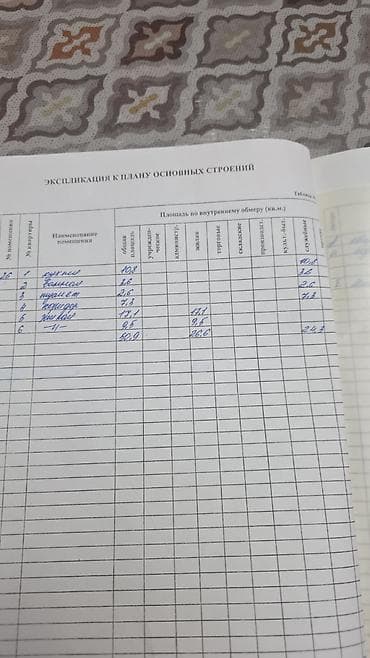 ЭКСПЛИКАЦИЯ К ПЛАНУ ОСНОВНЫХ СТРОЕНИЙ
Таблица
№ помещения № квартиры Наименование помещения Площадь по внутреннему обмеру (кв.м.)
общая площадь учрежден-ческие администр. жилая торговые складские производст. культ.-быт. служебные
26 1 кухня 10,8 10,8
2 ванная 3.6 3.6
3 туалет 2.6 2.6
4 коридор 7,3 7,3
5 жилая 17,1 17,1
6 —〃— 9,5 9,5
50,9 26,6 24,3